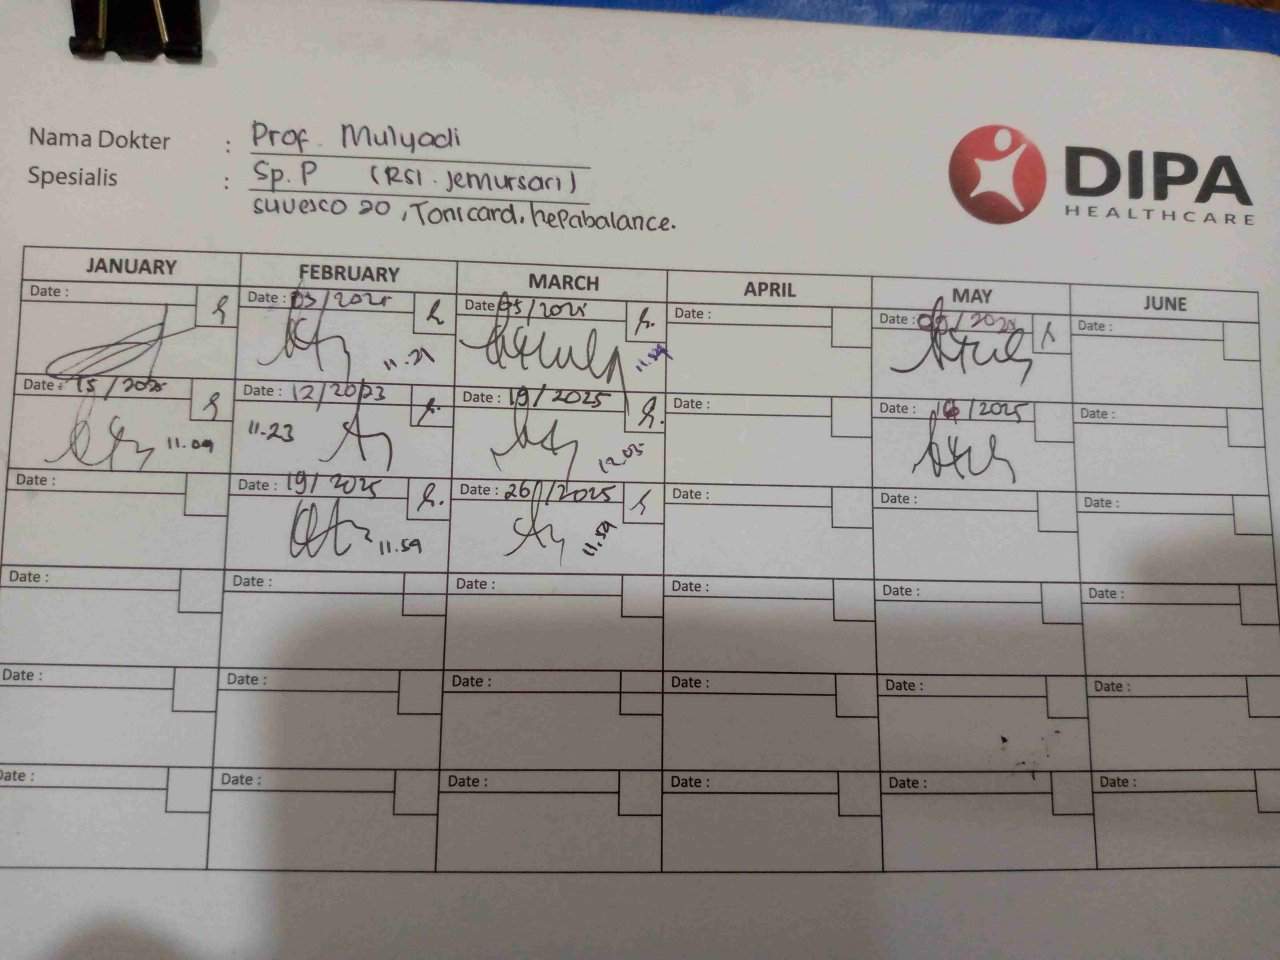 Nama Dokter : Prof. Mulyadi
Spesialis : Sp. P (RSI. Jemursari)
suvesco 20, Tonicard, hepabalance.
DIPA
HEALTHCARE
JANUARY FEBRUARY MARCH APRIL MAY JUNE
Date : Date : 05/2025 Date : 05/2025 Date : Date : /2025 Date :
11.21 11.59
Date : 15/2025 Date : 12/2023 Date : 19/2025 Date : Date : /2025 Date :
11.09 11.23 12.05
Date : Date : 19/2025 Date : 26/2025 Date : Date : Date :
11.59 11.59
Date : Date : Date : Date : Date : Date :
Date : Date : Date : Date : Date : Date :
Date : Date : Date : Date : Date : Date :